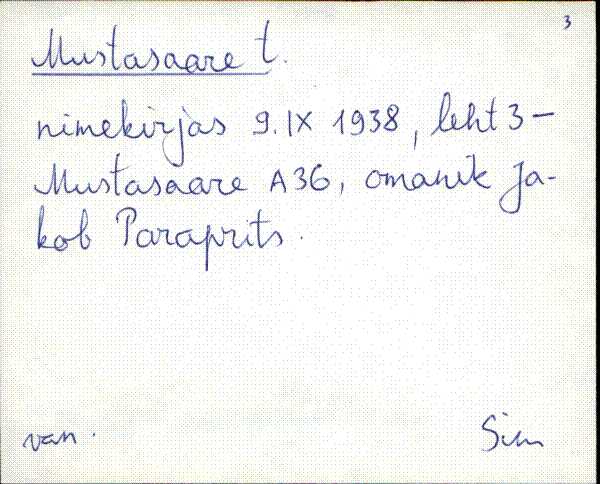 3
Mustasaare t.
nimekirjas 9. IX 1938, leht 3 –
Mustasaare A36, omanik Ja-
kob Paraprits.
van.
Sim